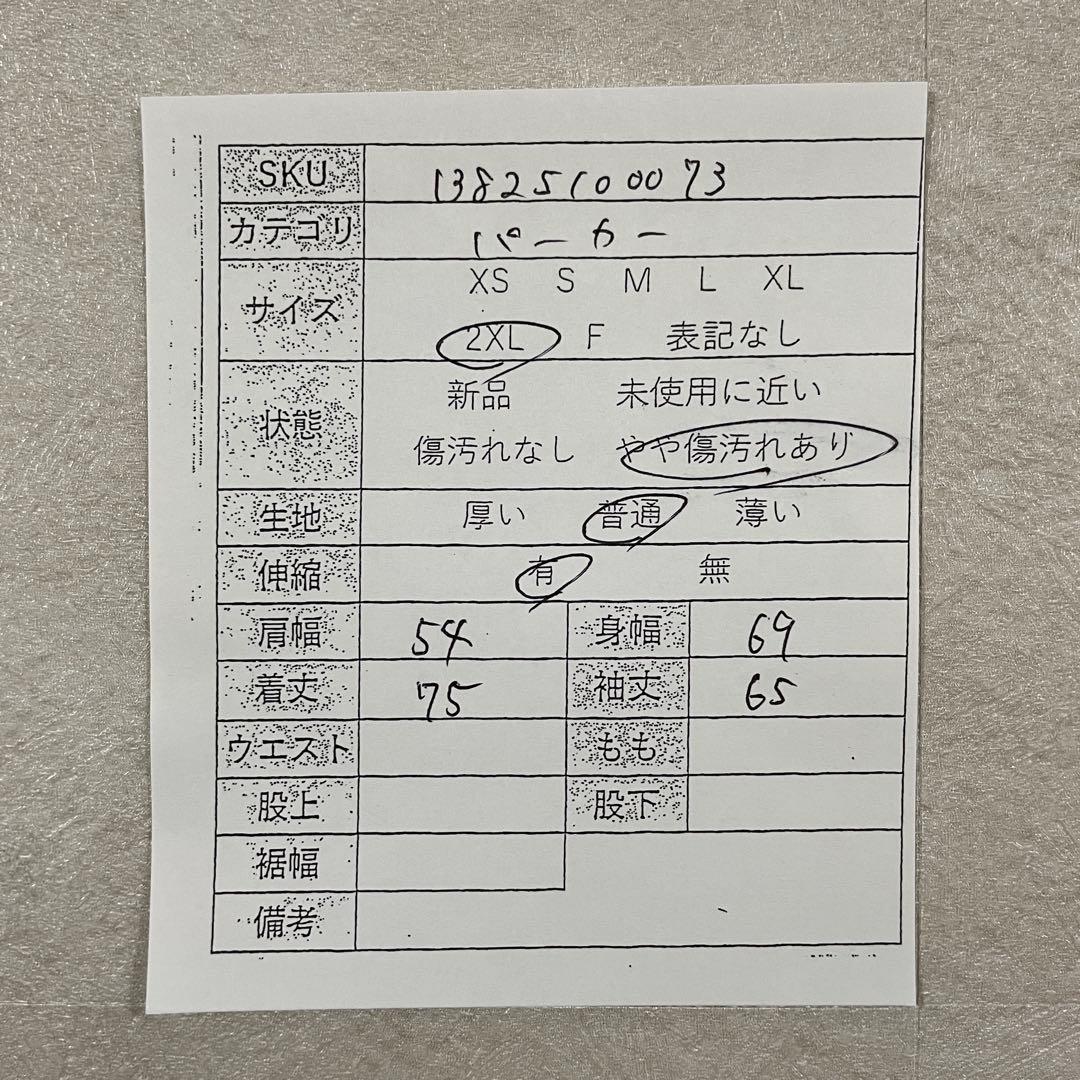 SKU 13825100073
カテゴリ パーカー
サイズ XS S M L XL
2XL F 表記なし
状態 新品 未使用に近い
傷汚れなし やや傷汚れあり
生地 厚い 普通 薄い
伸縮 有 無
肩幅 54 身幅 69
着丈 75 袖丈 65
ウエスト もも
股上 股下
裾幅
備考